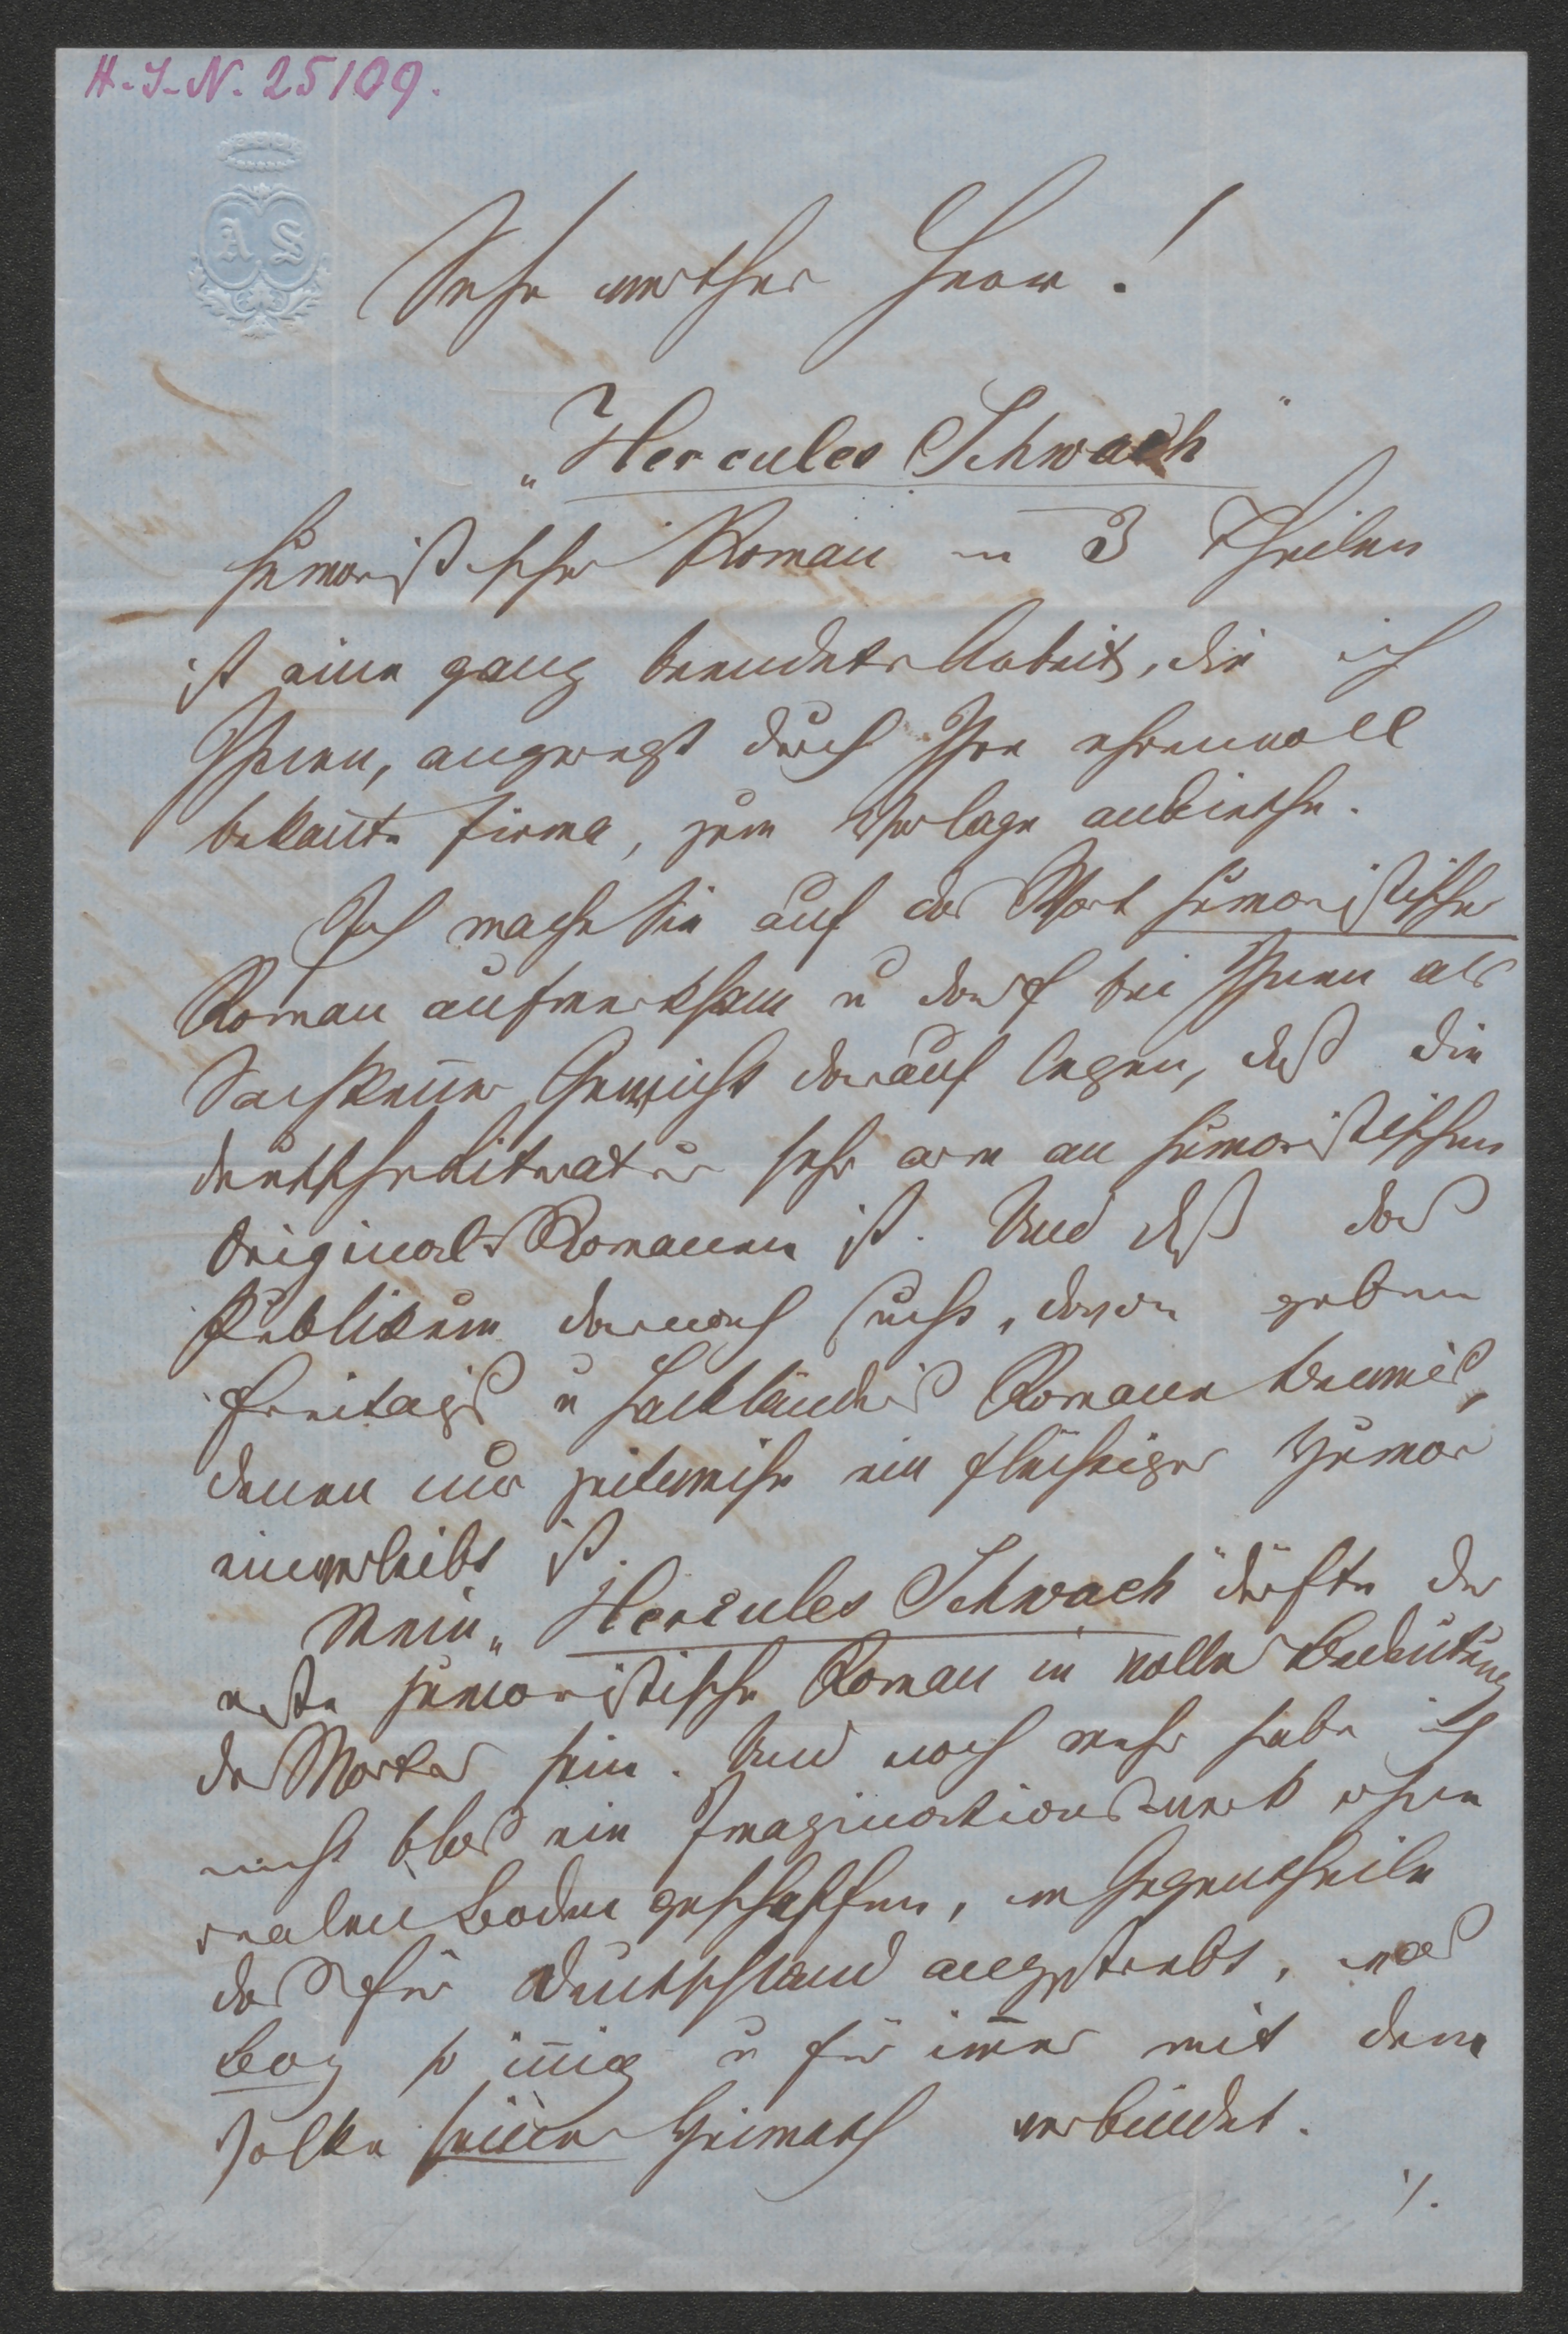 H.I.N. 25109.
A S
Sehr werther Herr!
„Hercules Schwach"
humoristischer Roman in 3 Theilen
ist eine ganz beendete Arbeit, die ich
Ihnen, angeregt durch Ihre ehrenvoll
bekañte Firma, zum Verlage anbiethe.
Ich mache Sie auf das Wort humoristischer
Roman aufmerksam u darf bei Ihnen als
Sachkeñer Gewicht darauf legen, daß die
deutsche Literatur sehr arm an humoristischen
Original-Romanen ist. Und daß das
Publikum darnach sucht, davon geben
Freitags u Hackländers Romane Beweis,
denen nur zeitweise ein flüchtiger Humor
einverleibt ist.
Mein „Hercules Schwach" dürfte der
erste humoristische Roman in voller Bedeutung
des Wortes sein. Und noch mehr habe ich
nicht blos ein Imaginationswerk ohne
realen Boden geschaffen, im Gegentheile
das für Deutschland angestrebt, was
Boz so iñig u für im̄er mit dem
Volke seiner Heimath verbindet.
./.